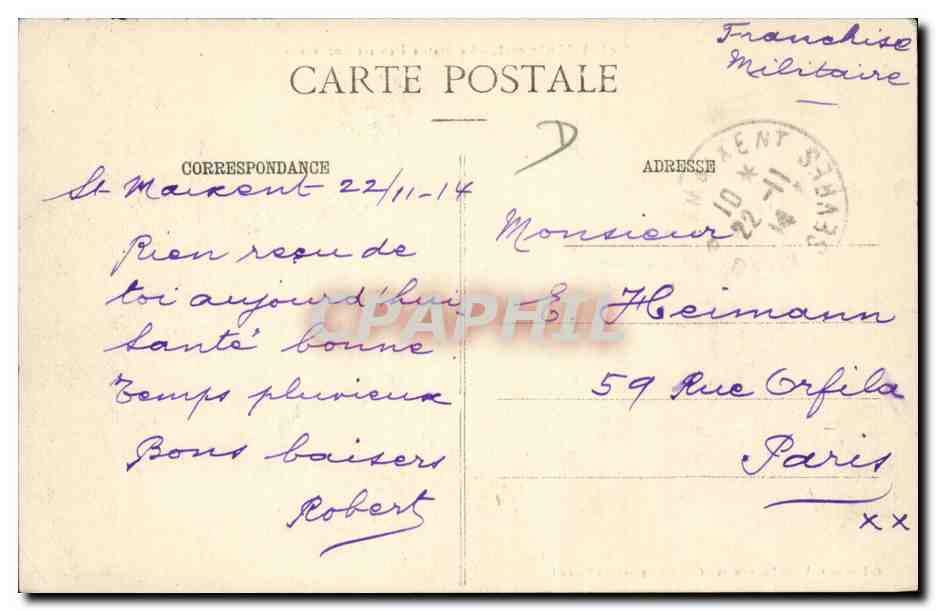 Franchise
Militaire
CARTE POSTALE
D
CORRESPONDANCE
St Maixent 22/11-14
Rien reçu de
toi aujourd'hui
Santé bonne
Temps pluvieux
Bons baisers
Robert
ADRESSE
MAIXENT
10 *
22 -11
14
Monsieur
E. Heimann
59 Rue Orfila
Paris
XX
CPAPHIL